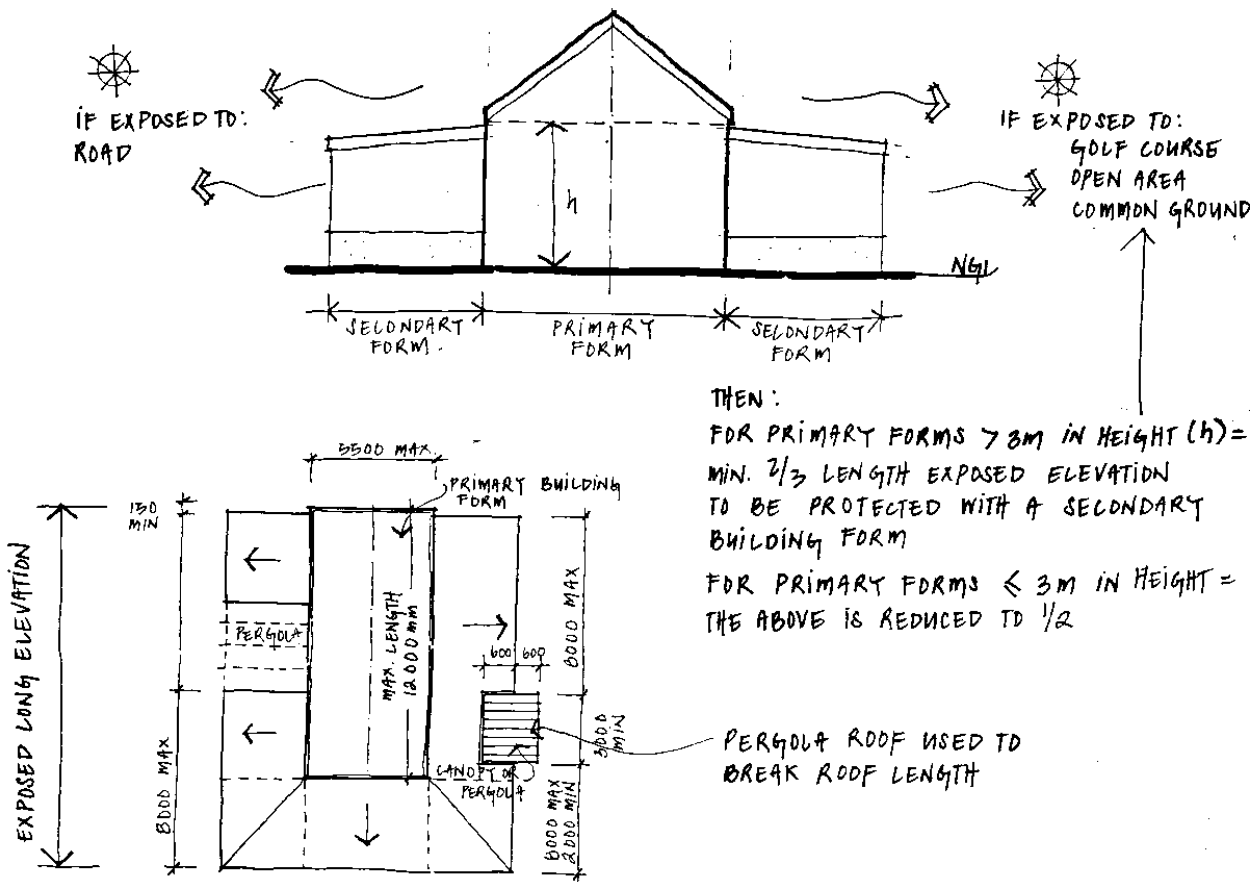 IF EXPOSED TO:
ROAD
IF EXPOSED TO:
GOLF COURSE
OPEN AREA
COMMON GROUND
h
NGL
SECONDARY
FORM.
PRIMARY
FORM
SECONDARY
FORM
THEN:
FOR PRIMARY FORMS > 3M IN HEIGHT (h) =
MIN. 2/3 LENGTH EXPOSED ELEVATION
TO BE PROTECTED WITH A SECONDARY
BUILDING FORM
FOR PRIMARY FORMS ≤ 3M IN HEIGHT =
THE ABOVE IS REDUCED TO 1/2
5500 MAX.
PRIMARY BUILDING
FORM
150
MIN
EXPOSED LONG ELEVATION
PERGOLA
8000 MAX
MAX. LENGTH
12000 MM
8000 MAX
600 600
3000
MIN
CANOPY OR
PERGOLA
8000 MAX
2000 MIN
PERGOLA ROOF USED TO
BREAK ROOF LENGTH